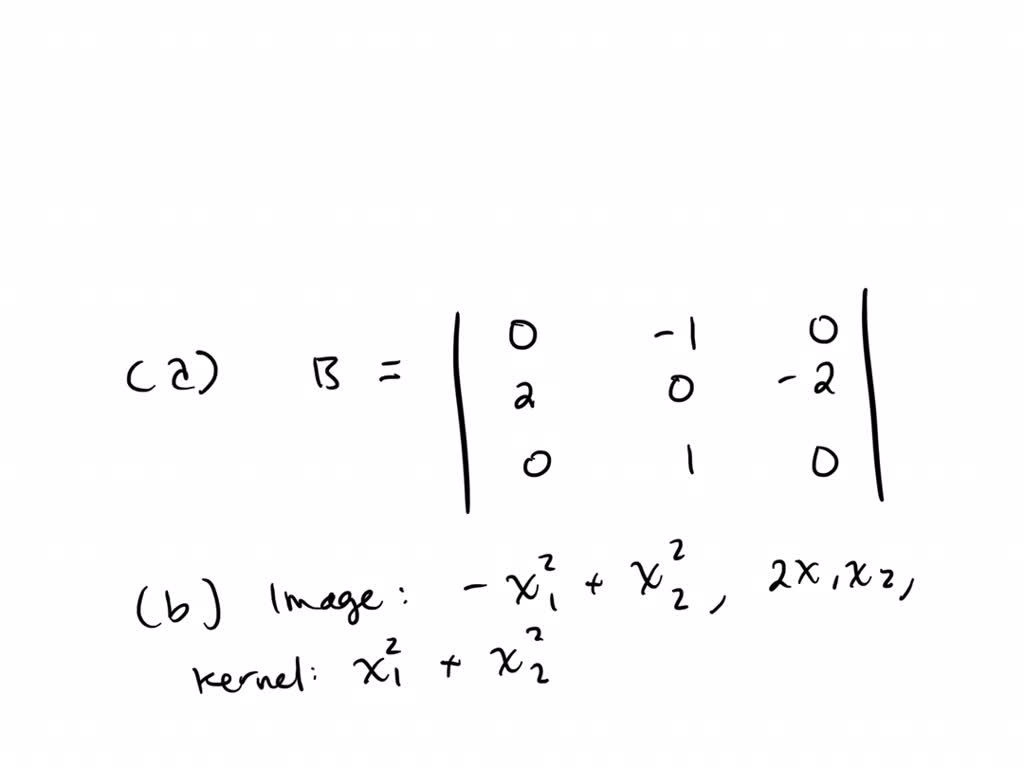 (a) B = | 0 -1 0 |
2 0 -2
0 1 0
(b) Image: - x₁² + x₂², 2x₁x₂,
kernel: x₁² + x₂²